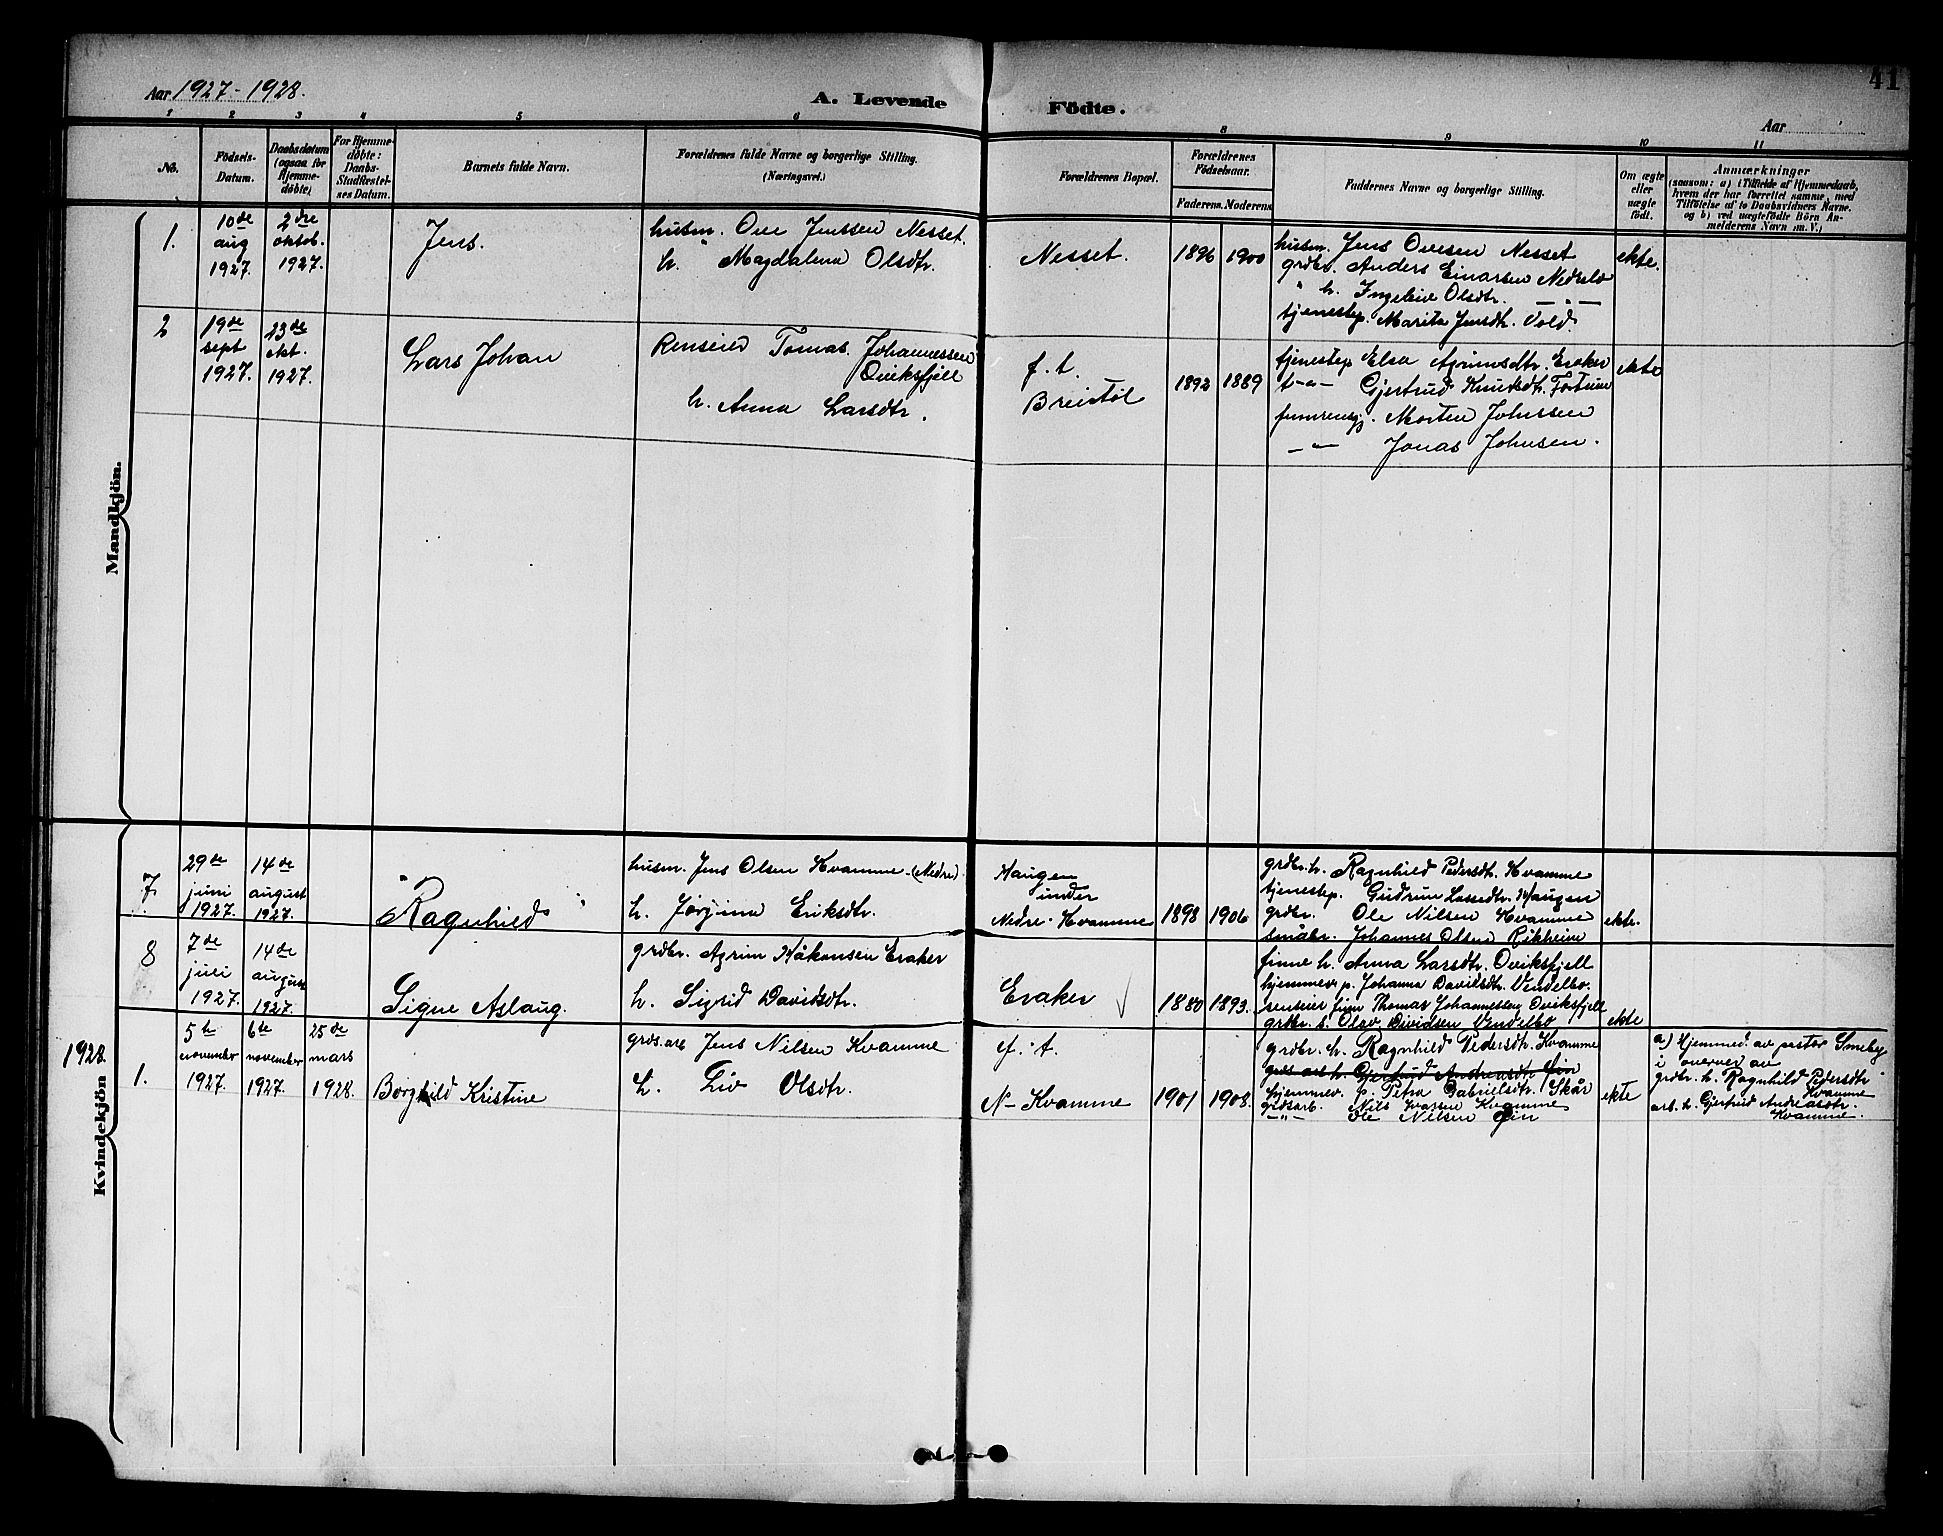 41
Aar 1927-1928.
A. Levende Födte.
Aar
1 2 3 4 5 6 8 9 10 11
No.
Födsels-
Datum.
Daabsdatum
(ogsaa for
Hjemme-
döbte)
For Hjemme-
döbte:
Daabs-
Stadfæstel-
ses Datum.
Barnets fulde Navn.
Forældrenes fulde Navne og borgerlige Stilling.
(Næringsvei.)
Forældrenes Bopæl.
Forældrenes
Födselsaar.
Faderens. Moderens.
Faddernes Navne og borgerlige Stilling.
Om ægte
eller
uægte
födt.
Anmærkninger
(saasom: a) i Tilfælde af Hjemmedaab,
hvem der har forrettet samme, med
Tilföielse af to Daabsvidners Navne,
og b) ved uægtefödte Börn An-
melderens Navn m. V.)
Mandkjön.
1.
10de
aug
1927.
2dre
oktob.
1927.
Jens.
husm. Ove Jenssen Nesset.
h. " Magdalena Olsdtr.
Nesset.
1896 1900
husm. Jens Ovesen Nesset
grdbr. Anders Einarsen Nedrelo
" h. Ingeleiv Olsdtr. — " —
tjenestep. Marita Jensdtr. Vold.
ekte.
2
19de
sept
1927.
23de
okt.
1927.
Lars Johan
Renseier Tomas Johannessen
Qviksfjell
h. Anna Larsdtr.
f. t.
Breistöl
1892 1889
tjenestep Elsa Agrimsdtr. Eraker
t-a- Gjertrud Knutsdtr. Fortun
Morten Johnssen
— " — Jonas Johnsen.
ekte
Kvindekjön
7.
29de
juni
1927.
14de
august
1927.
Ragnhild
husm. Jens Olsen Kvamme (Nedre)
h. Jørgina Eriksdtr.
Haugen
under
Nedre-Kvamme
1898 1906
grdbr. h. Ragnhild Pedersdtr. Kvamme
tjenestep. Gudrun Lassedtr. Haugen
grdbr. Ole Nilsen Kvamme
småbr. Johannes Olsen Rikheim
ekte.
8
7de
juli
1927.
14de
august
1927.
Signe Aslaug.
grdbr. Agrim Håkonsen Eraker
h. Sigrid Davidsdtr.
Eraker
1880 1893.
finne h. Anna Larsdtr. Qviksfjell
hjemmev. p. Johanna Davidsdtr. Vendelbo.
renseier finn Thomas Johannessen Qviksfjell
grdbr. s. Olav Davidsen Vendelbo
ekte
1928
1.
5te
november
1927.
6te
november
1927.
25de
mars
1928.
Borghild Kristine
grds. arb Jens Nilsen Kvamme
h. Liv Olsdtr.
f. t.
N- Kvamme
1901 1908.
grdbr. h. Ragnhild Pedersdtr. Kvamme
grds arb h. Gjertrud Andreasdtr
hjemmev. p. Petra Gabrielsdtr. Skår
grdsarb. Nils Kvamme
—"— Ole Nilsen
ekte
a) Hjemmed. av prestor Smeby
i nærver av
grdbr. h. Ragnhild Pedersdtr
Kvamme
arb. h. Gjertrud Andreasdtr.
Kvamme.